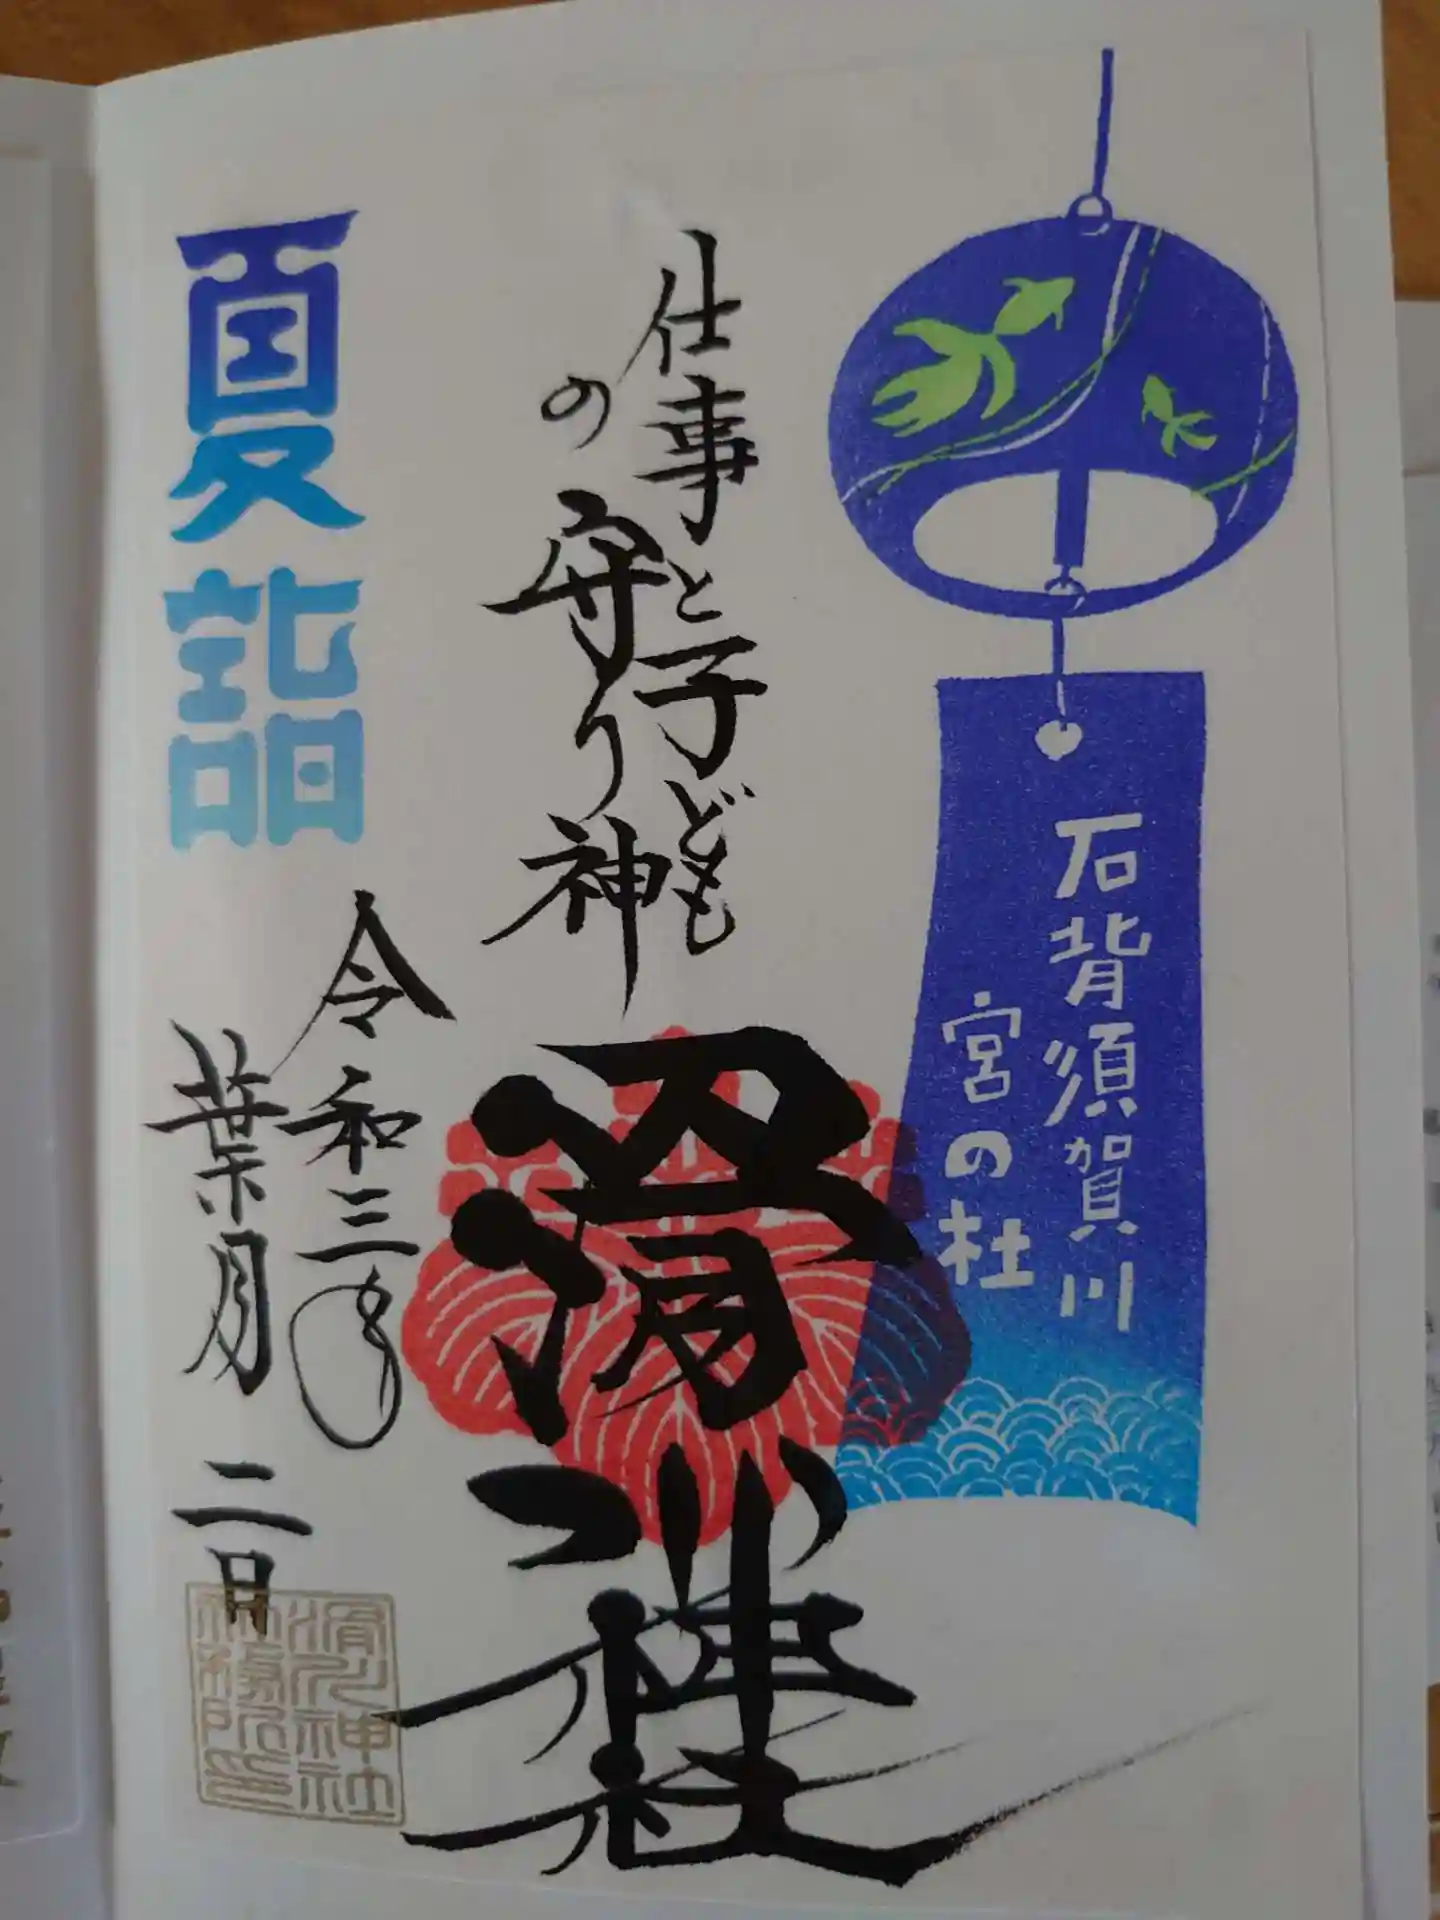 石背須賀川
宮の杜
仕事と子ども
の守り神
滑川神社
夏詣
令和三年
葉月二日
滑川神社